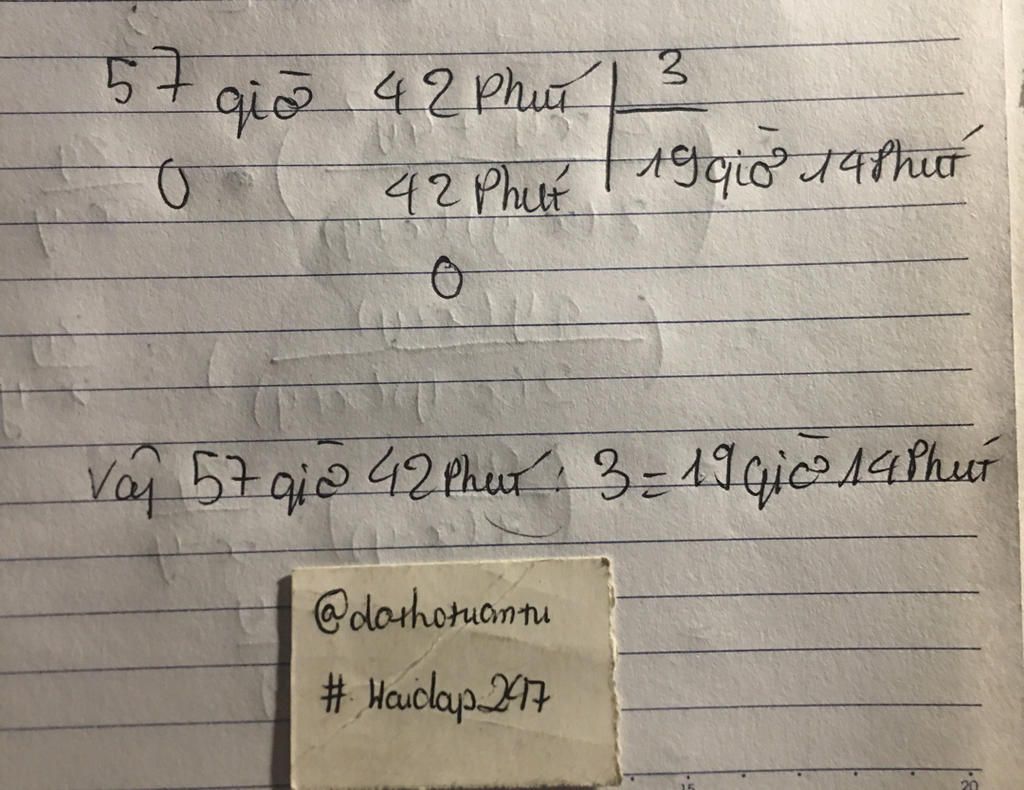 57 giờ 42 Phút 3
0 42 Phút 19 giờ 14 Phút
0
Vậy 57 giờ 42 Phút : 3 = 19 giờ 14 Phút
@dathotuantu
# Haidap_247
15 20